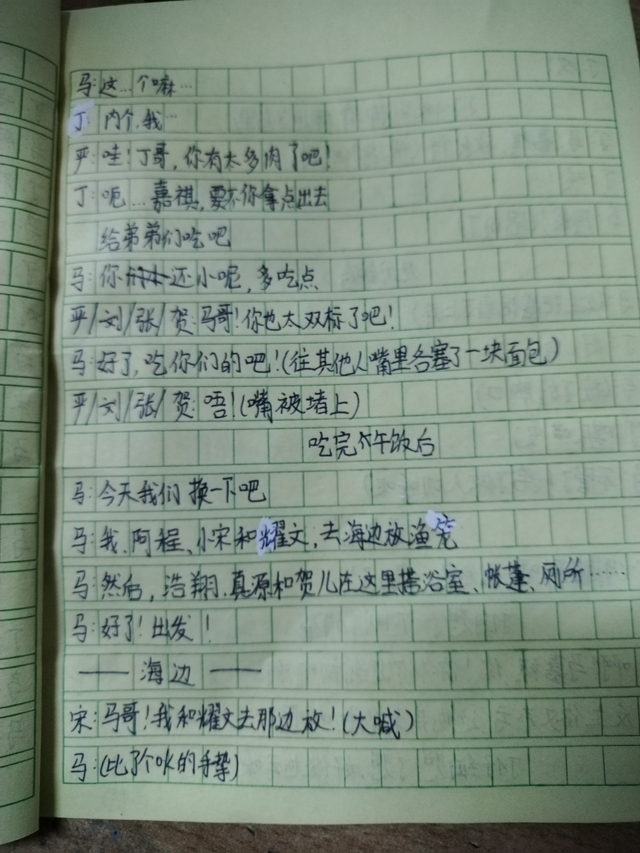 马:这…个嘛…
丁:内个,我…
严:哇!丁哥,你有太多肉了吧!
丁:呃…嘉祺,要不你拿点出去
给弟弟们吃吧
马:你还小呢,多吃点
严/刘/张/贺:马哥!你也太双标了吧!
马:好了,吃你们的吧!(往其他人嘴里各塞了一块面包)
严/刘/张/贺:唔!(嘴被堵上)
吃完下午饭后
马:今天我们换一下吧
马:我、阿程、小宋和耀文,去海边放渔笼
马:然后,浩翔、真源和贺儿在这里搭浴室、帐蓬、厕所……
马:好了!出发!
——海边——
宋:马哥!我和耀文去那边放!(大喊)
马:(比了个ok的手势)